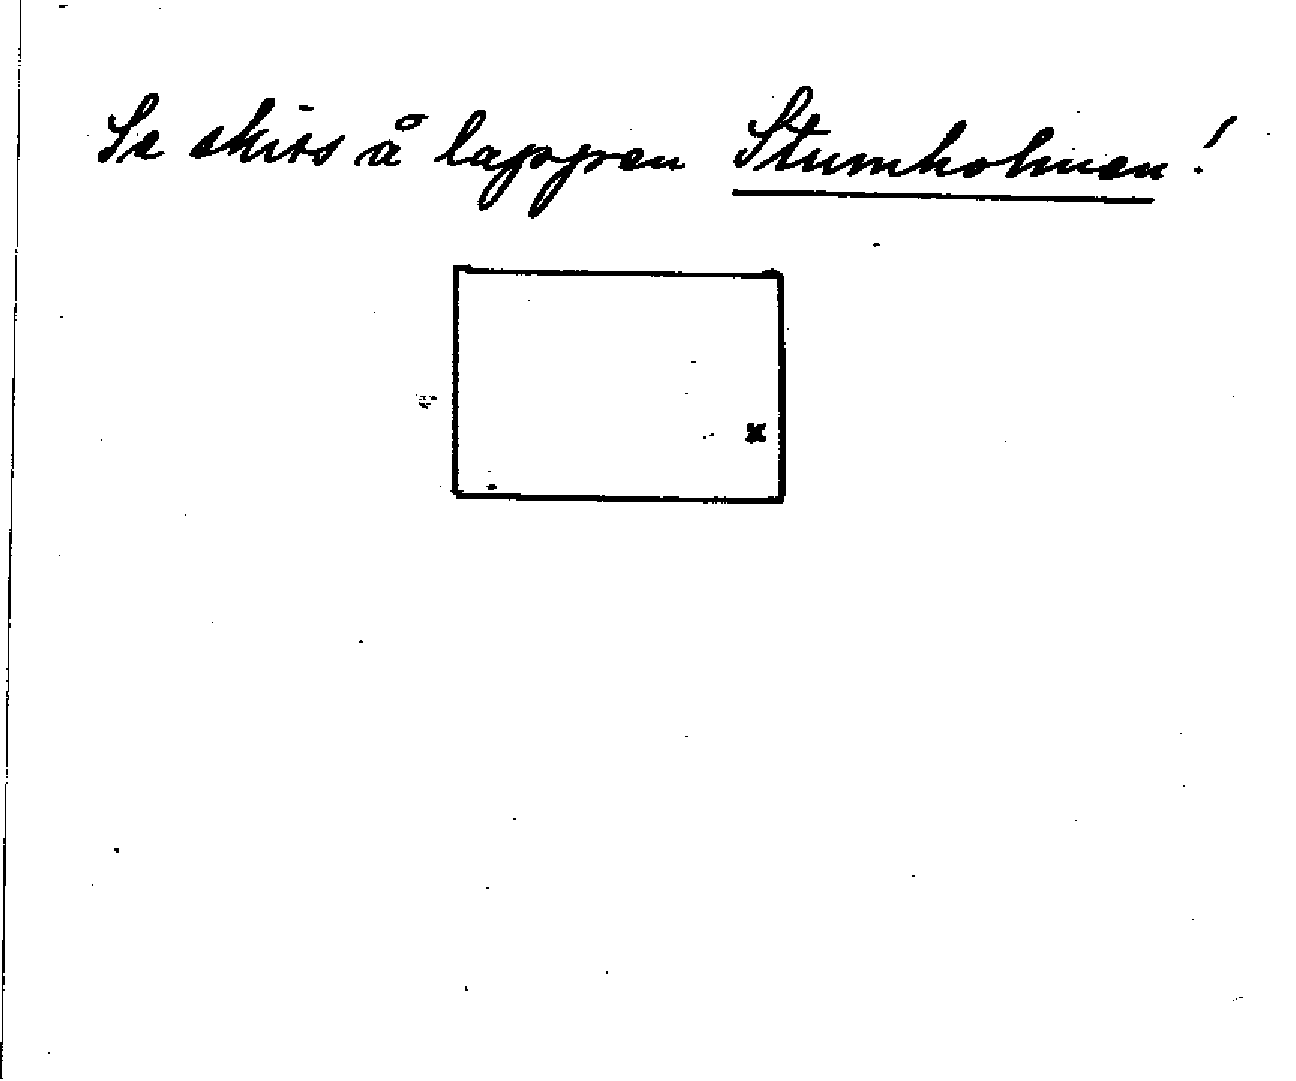 Se skiss å lappen Stumholmen!
x